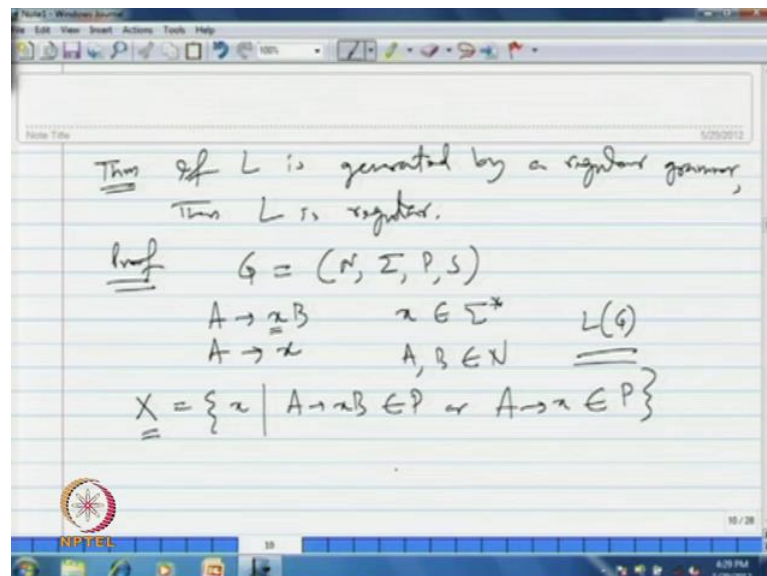 Note1 - Windows Journal
File Edit View Insert Actions Tools Help
100%
Note Title
5/29/2012
Thm If L is generated by a regular grammar,
Then L is regular.
Proof G = (N, Σ, P, S)
A → xB x ∈ Σ* L(G)
A → x A, B ∈ N
X = { x | A → xB ∈ P or A → x ∈ P }
NPTEL
10 / 28
10
4:29 PM